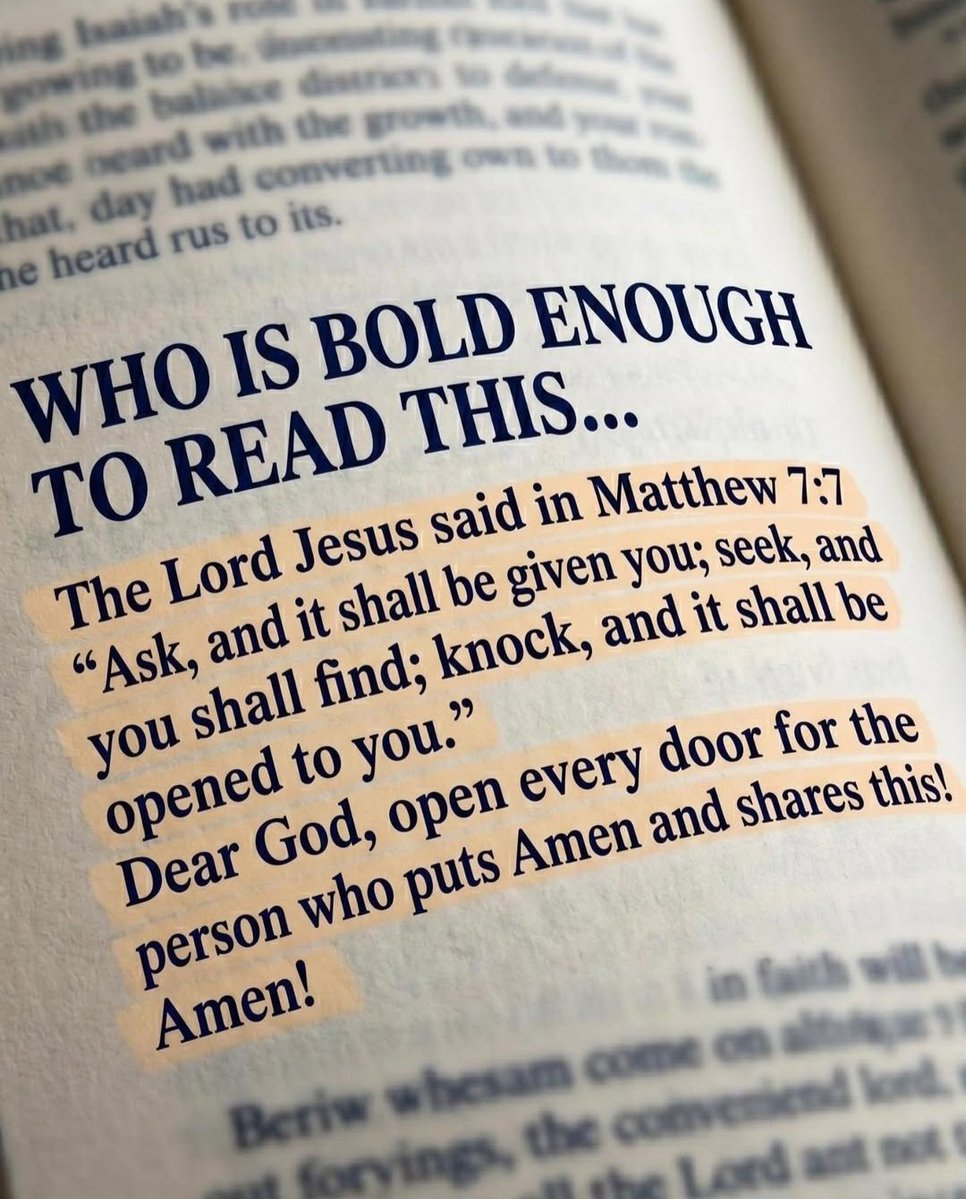 ing Isaiah's role
growing to be,
the balance to defense,
heard with the growth, and your
that, day had converting own to thom the
he heard rus to its.
WHO IS BOLD ENOUGH
TO READ THIS...
The Lord Jesus said in Matthew 7:7
“Ask, and it shall be given you; seek, and
you shall find; knock, and it shall be
opened to you.”
Dear God, open every door for the
person who puts Amen and shares this!
Amen!
in faith will be
Beriw whesam come on
forvings, the conveniend lord,
the Lord ant not